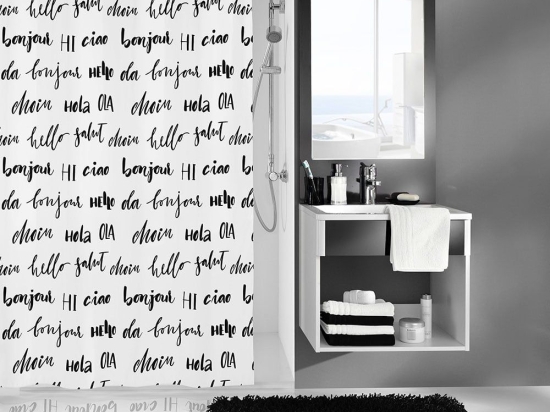 moin hello salut moin hello
bonjour HI ciao bonjour HI ciao
da bonjour HELLO da bonjour HELLO
moin HOLA OLA moin HOLA OLA
moin hello salut moin hello salut moin
bonjour HI ciao bonjour HI ciao
da bonjour HELLO da bonjour HELLO
moin HOLA OLA moin HOLA OLA
moin hello salut moin hello salut moin
bonjour HI ciao bonjour HI ciao
da bonjour HELLO da bonjour HELLO
moin HOLA OLA moin HOLA OLA